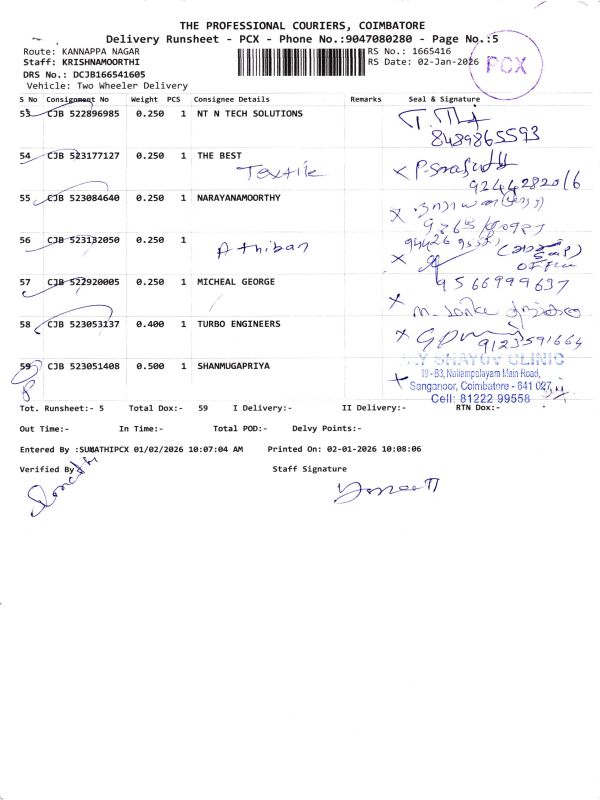 THE PROFESSIONAL COURIERS, COIMBATORE
Delivery Runsheet - PCX - Phone No.:9047080280 - Page No.:5
Route: KANNAPPA NAGAR RS No.: 1665416
Staff: KRISHNAMOORTHI RS Date: 02-Jan-2026
PCX
DRS No.: DCJB166541605
Vehicle: Two Wheeler Delivery
S No Consignment No Weight PCS Consignee Details Remarks Seal & Signature
53 CJB 522896985 0.250 1 NT N TECH SOLUTIONS
8489865593
54 CJB 523177127 0.250 1 THE BEST
Textile
9244282016
55 CJB 523084640 0.250 1 NARAYANAMOORTHY
56 CJB 523132050 0.250 1
Athiban
57 CJB 522920005 0.250 1 MICHEAL GEORGE 9566999637
58 CJB 523053137 0.400 1 TURBO ENGINEERS
9123591664
59 CJB 523051408 0.500 1 SHANMUGAPRIYA
CLINIC
19 - B3, Nallampalayam Main Road,
Sanganoor, Coimbatore - 641 027
Cell: 81222 99558
Tot. Runsheet:- 5 Total Dox:- 59 I Delivery:- II Delivery:- RTN Dox:-
Out Time:- In Time:- Total POD:- Delvy Points:-
Entered By :SUMATHIPCX 01/02/2026 10:07:04 AM Printed On: 02-01-2026 10:08:06
Verified By Staff Signature